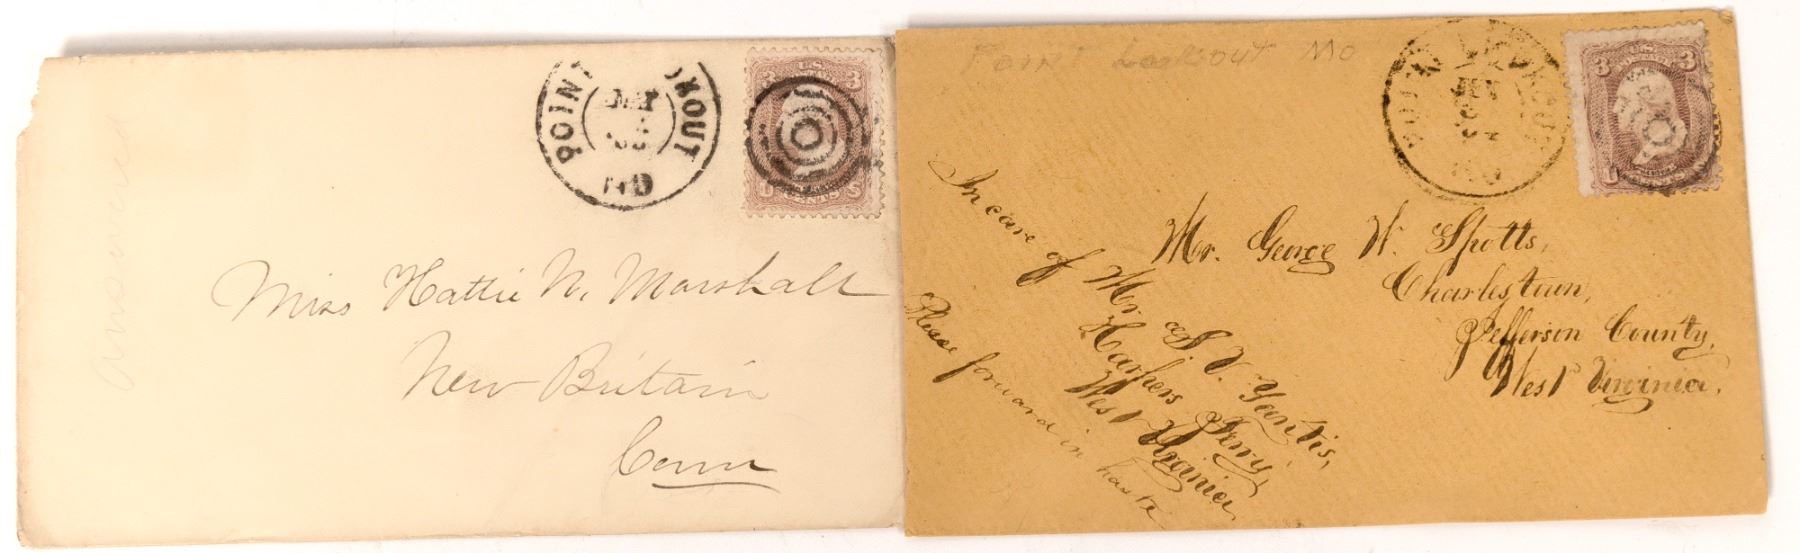 answered
POINT LOOKOUT
MD
3 U.S. 3
Miss Hattie N. Marshall
New Britain
Conn
Point Lookout MD
POINT LOOKOUT
MD
3 3
Mr. George W. Spotts,
Charlestown,
Jefferson County,
West Virginia.
In care of Mr. S. V. Yantis,
Harpers Ferry,
West Virginia,
Please forward in haste